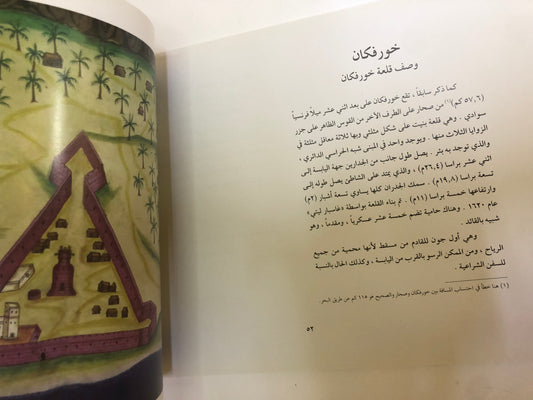 خورفكان
وصف قلعة خورفكان
كما ذكر سابقاً ، تقع خورفكان على بعد اثني عشر ميلاً فرنسياً
(٥٧,٦ كم)(١) من صحار على الطرف الآخر من القوس الظاهر على جزر
سوادي . وهي قلعة بنيت على شكل مثلثي وبها ثلاثة معاقل مثلثة في
الزوايا الثلاث منها . ويوجد واحد في المبنى شبه الحراسي الدائري ،
والذي توجد به بئر . يصل طول جانب من الجدارين جهة اليابسة إلى
اثني عشر براسا (٢٦,٤م) ، والذي يمتد على الشاطئ يصل طوله إلى
تسعة براسا (١٩,٨م) . سمك الجدران كلها يساوي تسعة أشبار (٢م)
وارتفاعها خمسة براسا (١١م) . تم بناء القلعة بواسطة «غاسبار ليتي»
عام ١٦٢٠ . وهناك حامية تضم خمسة عشر عسكرياً ، ومقدماً ، وهو
شبيه بالقائد .
وهي أول جون للقادم من مسقط لأنها محمية من جميع
الرياح ، ومن الممكن الرسو بالقرب من اليابسة ، وكذلك الحال بالنسبة
للسفن الشراعية .
(١) هنا خطأ في احتساب المسافة بين خورفكان وصحار والصحيح هو ١١٥ كم عن طريق البحر.
٥٢